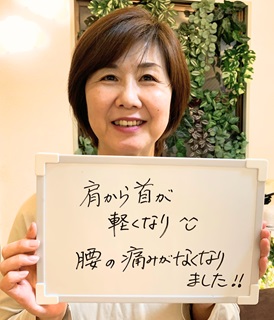 肩から首が
軽くなり
腰の痛みがなくなり
ました!!